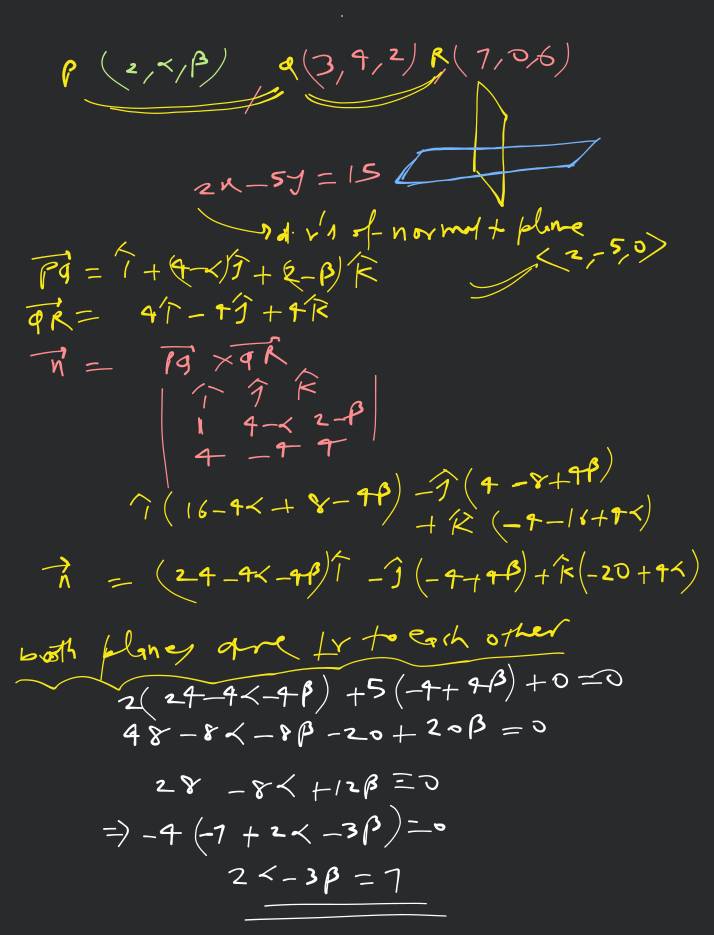 P (2, α, β) Q (3, 4, 2) R (7, 0, 6)
2x - 5y = 15
→ d.r's of normal + plane
<2, -5, 0>
PQ⃗ = î + (4-α)ĵ + (2-β)k̂
QR⃗ = 4î - 4ĵ + 4k̂
n⃗ = PQ⃗ × QR⃗
| î ĵ k̂ |
| 1 4-α 2-β |
| 4 -4 4 |
î (16-4α + 8-4β) - ĵ (4 -8+4β)
+ k̂ (-4-16+4α)
n⃗ = (24-4α-4β)î - ĵ(-4+4β) + k̂(-20+4α)
both planes are ⊥r to each other
2(24-4α-4β) + 5(-4+4β) + 0 = 0
48 - 8α - 8β - 20 + 20β = 0
28 - 8α + 12β = 0
⇒ -4(-7 + 2α - 3β) = 0
2α - 3β = 7